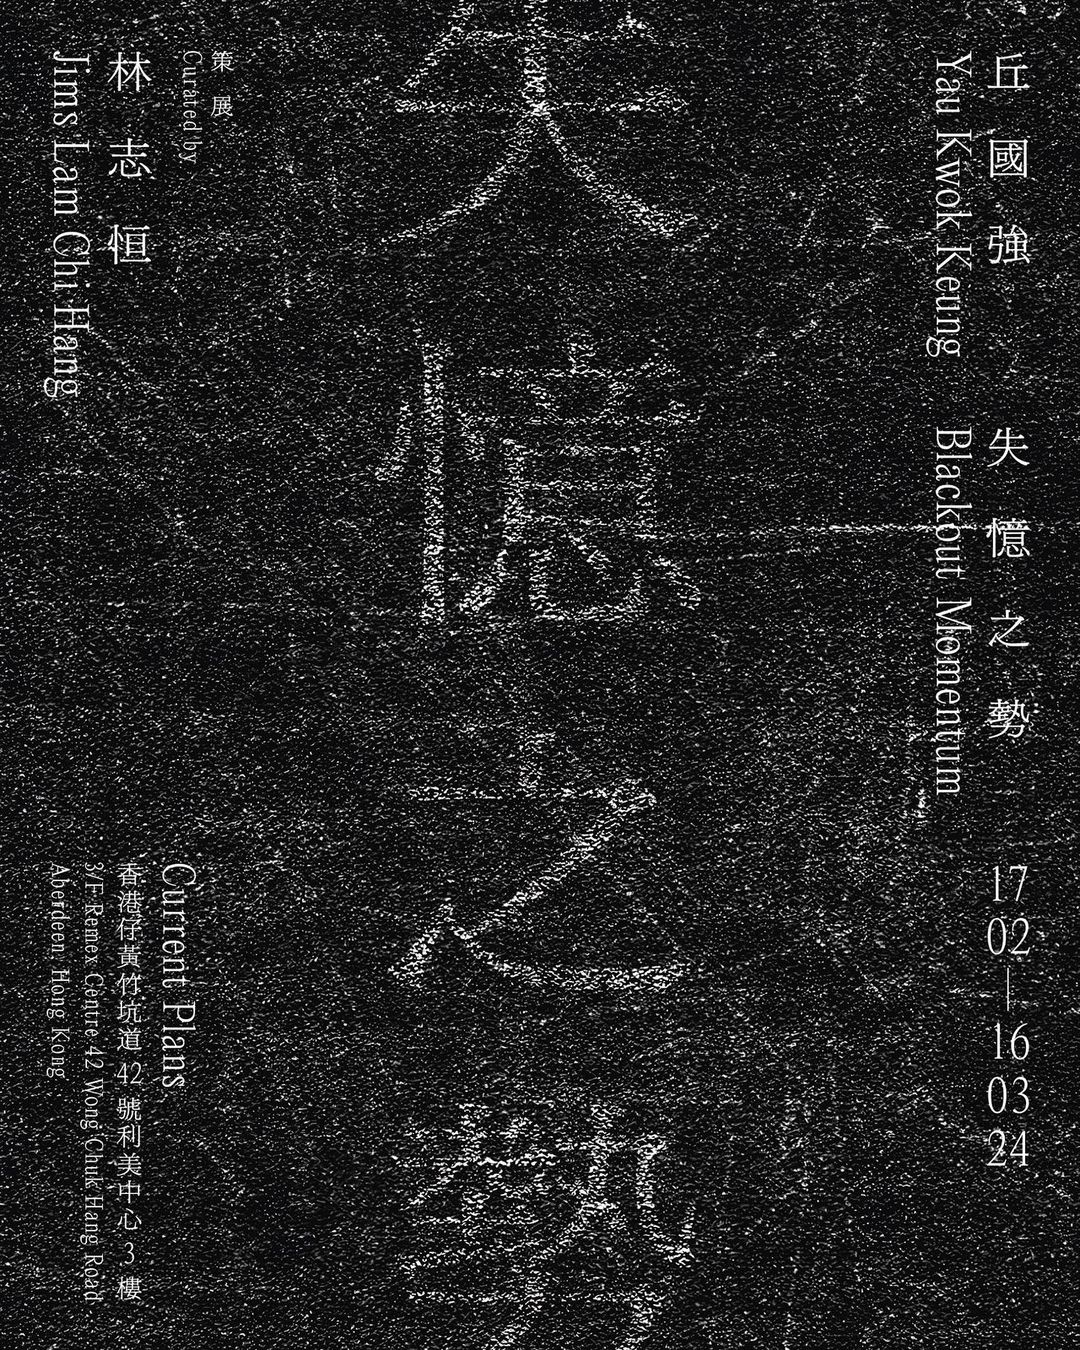 丘國強
Yau Kwok Keung
失憶之勢
Blackout Momentum
17
02
—
16
03
24
失憶之勢
策展
Curated by
林志恒
Jims Lam Chi Hang
Current Plans
香港仔黃竹坑道 42 號利美中心 3 樓
3/F Remex Centre 42 Wong Chuk Hang Road
Aberdeen, Hong Kong